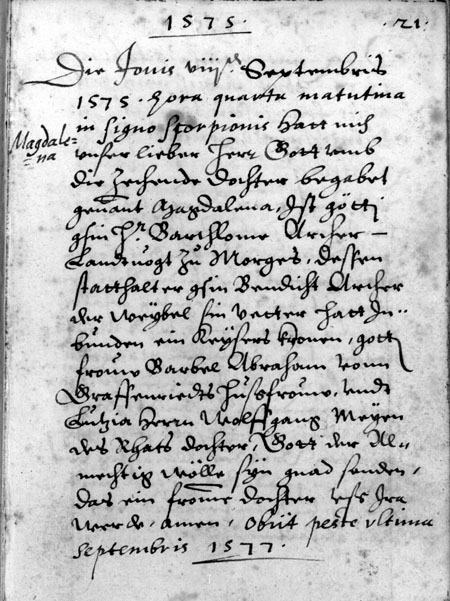 1575. .21.
Die Jouis viij Septembris
1575. hora quarta matutina
in signo scorpionis hatt mich
Magdale=
na
vnser lieber herr Gott vmb
die zechende dochter begabet
genant Magdalena, Ist götti
gsin Hr Barthlome Archer
Landtuogt zu Morges, dessen
statthalter gsin Bendicht Archer
der weybel sin vetter hatt In=
bunden ein Keysers kronen, gott
frouw Barbel Abraham vonn
Graffenriedts hussfrouw, vndt
Lutzia Herrn Wolffgang Meyen
des Rhats dochter, Gott der Al=
mechtig wölle syn gnad senden,
das ein frome dochter vss Ira
werde, amen, obijt peste vltima
Septembris 1577.